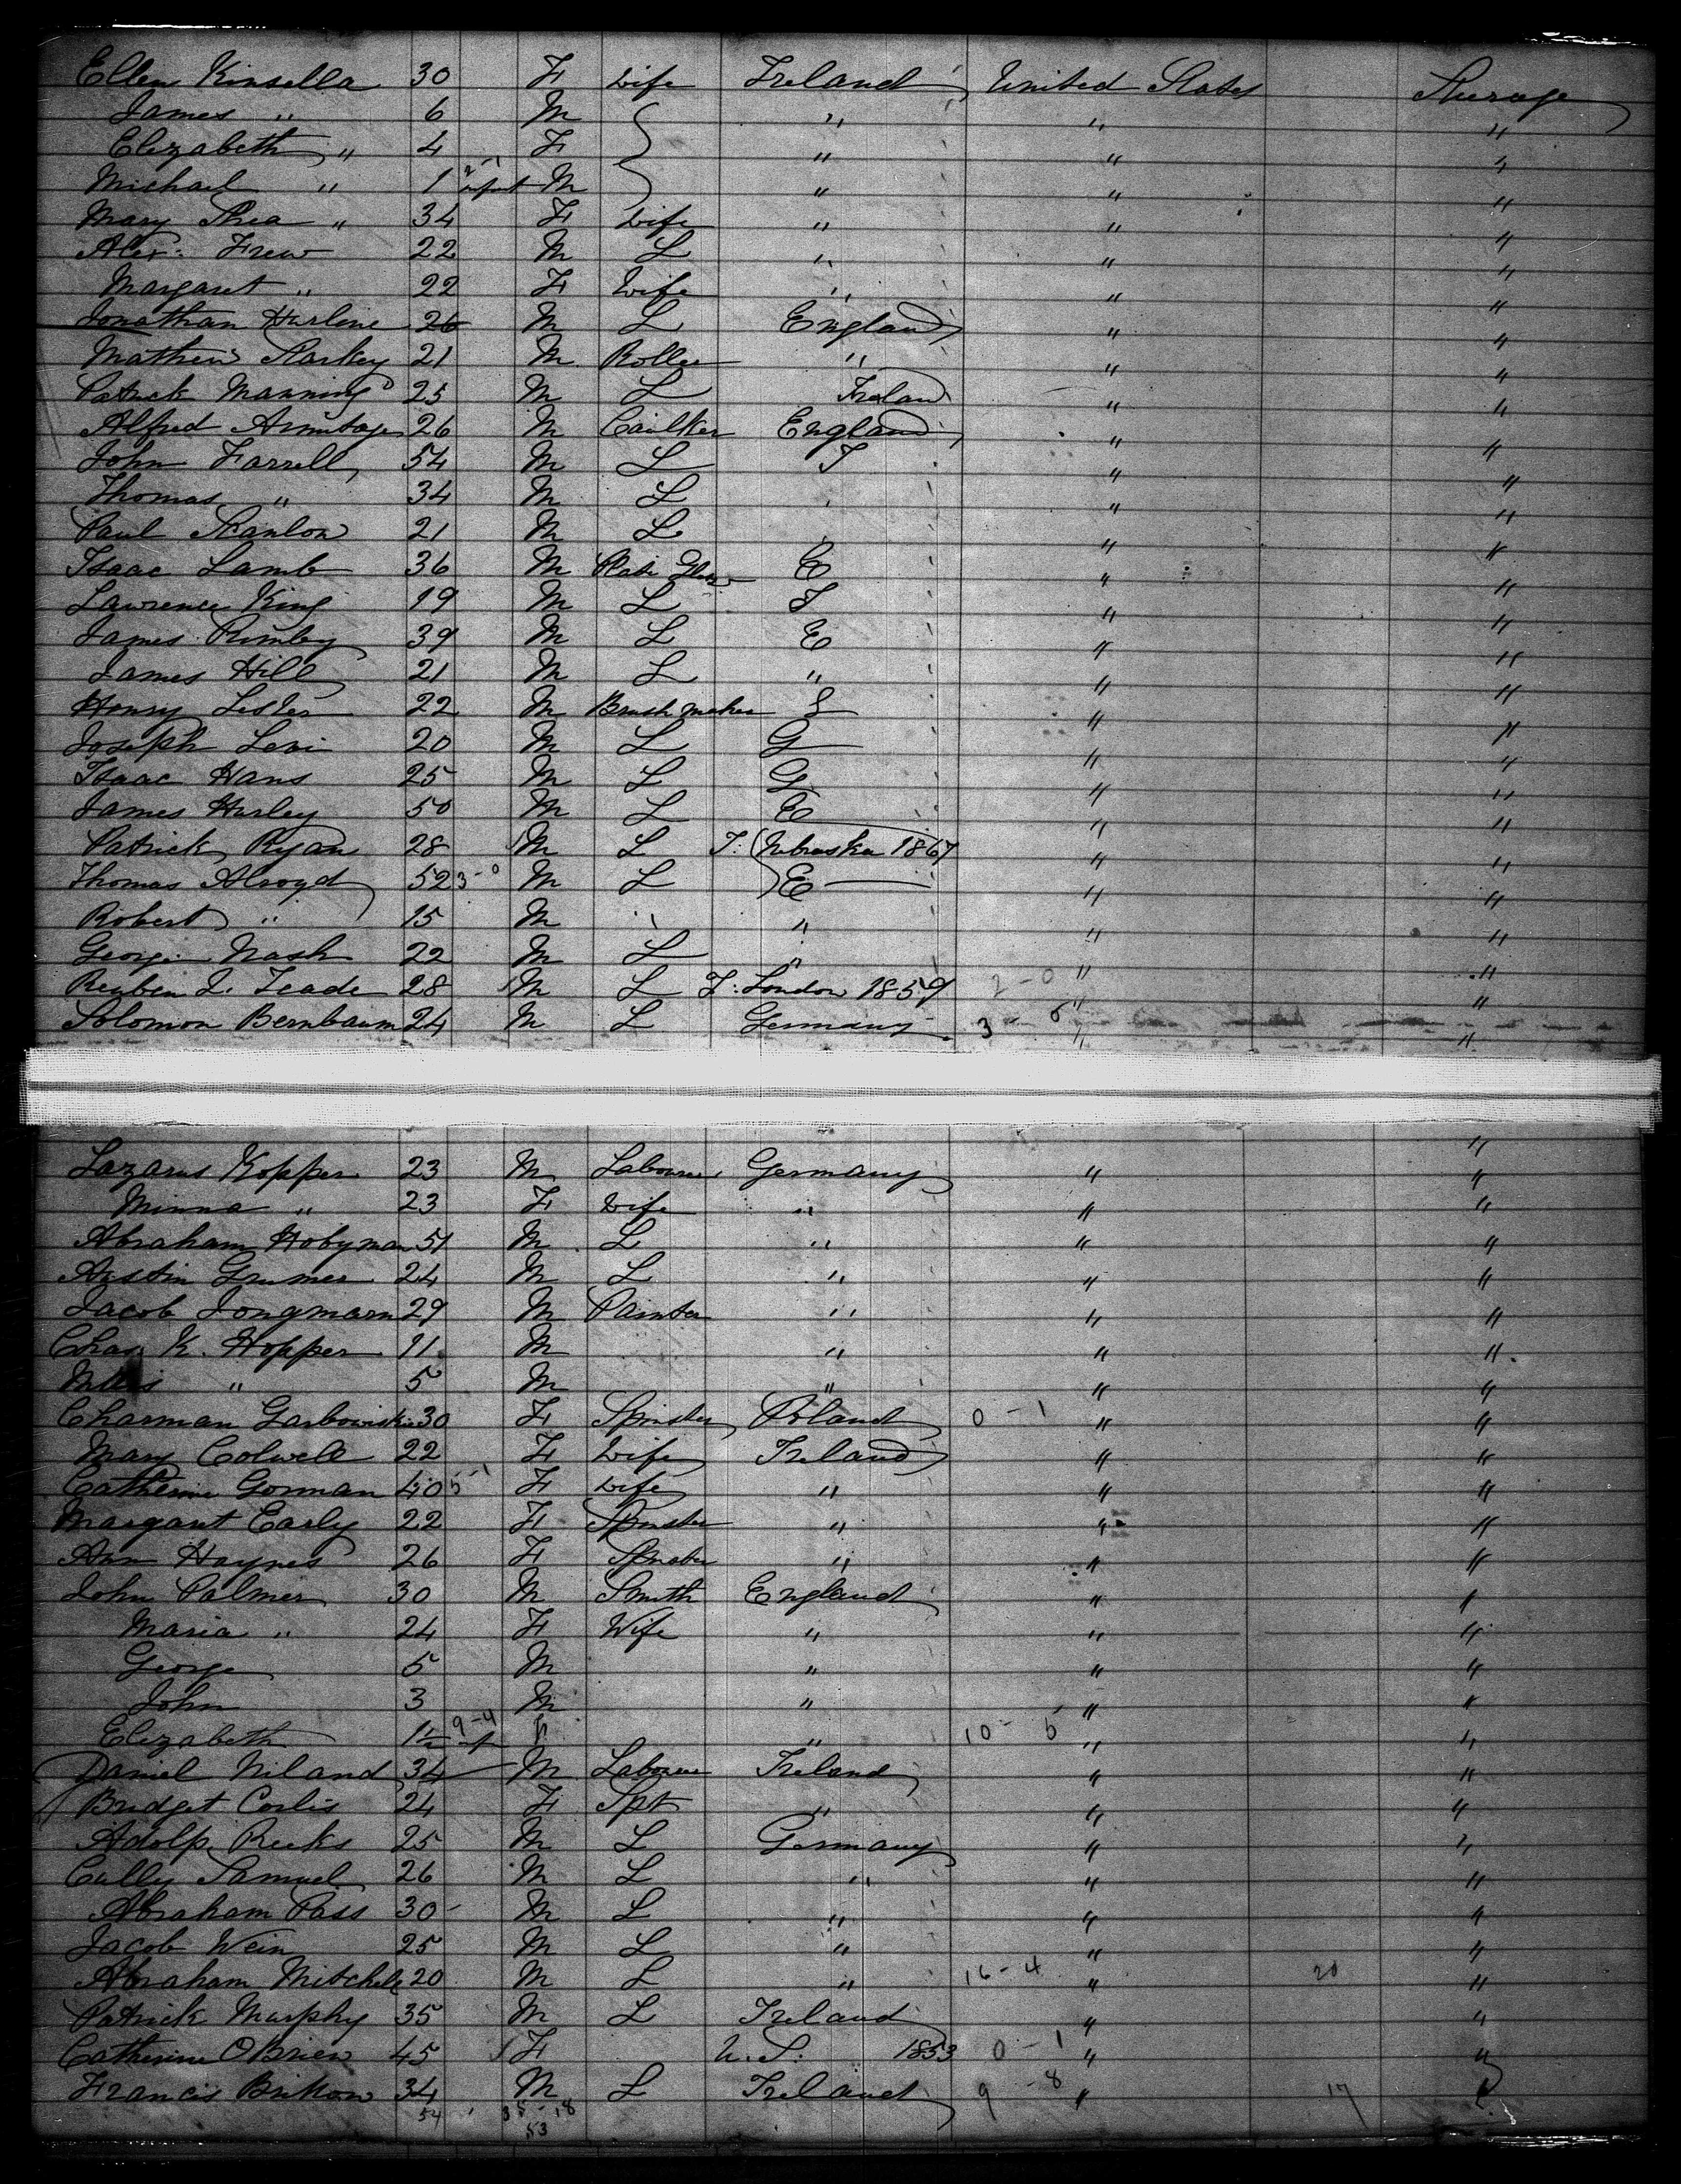 Ellen Kinsella 30 F Wife Ireland United States Steerage
James " 6 M " " "
Elizabeth " 4 F " " "
Michael " 1 infant M " " "
Mary Shea " 34 F Wife " " "
Alex. Frew 22 M L " " "
Margaret " 22 F Wife " " "
Jonathan Hurline 26 M L England " "
Mathew Starkey 21 M Roller " " "
Patrick Manning 25 M L Ireland " "
Alfred Armitage 26 M Caulker England " "
John Farrell 54 M L I " "
Thomas " 34 M L " "
Paul Scanlon 21 M L " "
Isaac Lamb 36 M Plate E " "
Lawrence King 19 M L I " "
James Rimby 39 M L E " "
James Hill 21 M L " " "
Henry Lester 22 M Brush maker " "
Joseph Levi 20 M L G " "
Isaac Hans 25 M L G " "
James Hurley 50 M L E " "
Patrick Ryan 28 M L I. Nebraska 1867 " "
Thomas Alroyd 52 3-0 M L E " "
Robert " 15 M " " " "
George Nash 22 M L " " "
Reuben I. Teade 28 M L F. London 1859 2-0 " "
Solomon Bernbaum 24 M L Germany 3-6 " "
Lazarus Kopper 23 M Labourer Germany " "
Minna " 23 F Wife " " "
Abraham Hobyman 51 M L " " "
Austin Grumer 24 M L " " "
Jacob Jongmann 29 M Painter " " "
Chas. K. Hopper 11 M " " "
" 5 M " " "
Charman Garbowiski 30 F Spinster Poland 0-1 " "
Mary Colwell 22 F Wife Ireland " "
Catherine Gorman 40 5-1 F Wife " " "
Margaret Early 22 F Spinster " " "
Ann Haynes 26 F Spinster " " "
John Palmer 30 M Smith England " "
Maria " 24 F Wife " " "
George 5 M " " "
John 3 M " " "
Elizabeth 1 9-4 " 10-5 " "
Daniel Niland 34 M Labourer Ireland " "
Bridget Corlis 24 F Spt " " "
Adolp Reeks 25 M L Germany " "
Cully Samuel 26 M L " " "
Abraham Pass 30 M L " " "
Jacob Wein 25 M L " " "
Abraham Mitchely 20 M L " 16-4 " 20 "
Patrick Murphy 35 M L Ireland " "
Catherine O'Brien 45 F U.S. 1853 0-1 " "
Francis Brikon 34 M L Ireland 9-8 " 17
54 35-18
53